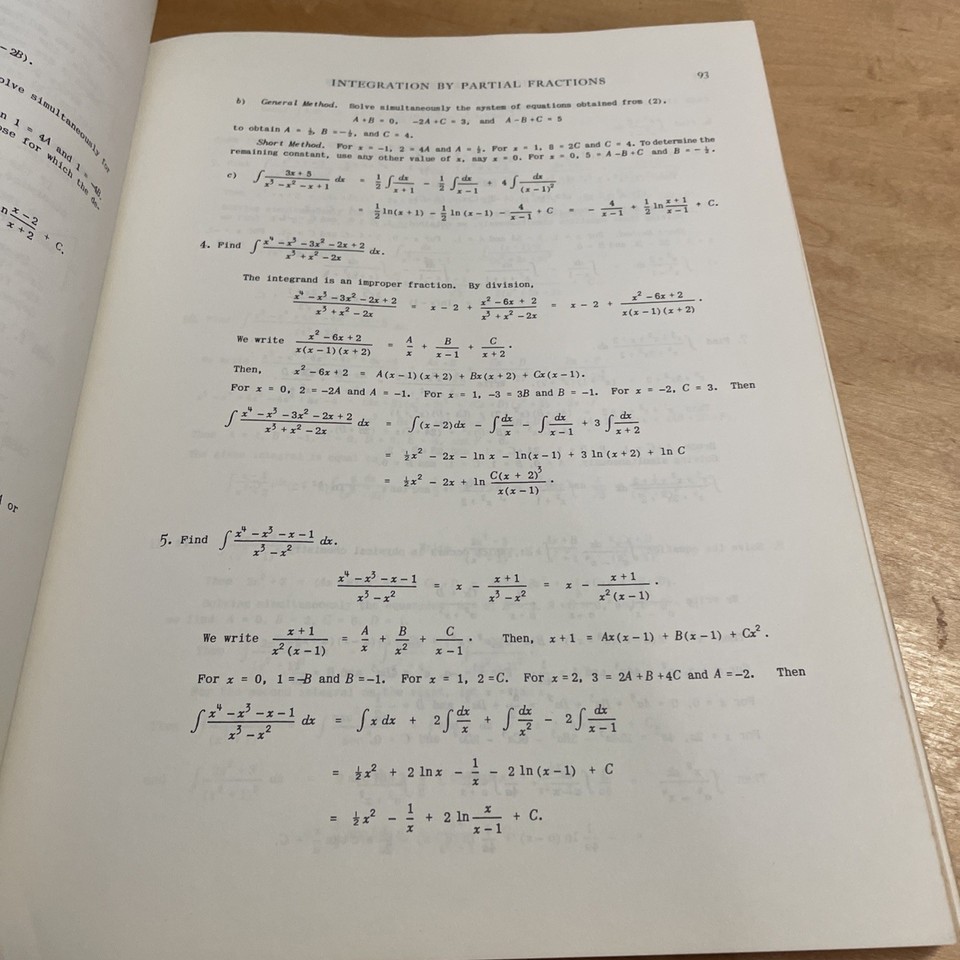 – 2B).
olve simultaneously for
n 1 = 4A and 1 = –4B,
ose for which the de-
n x – 2 / x + 2 + C.
or
INTEGRATION BY PARTIAL FRACTIONS 93
b) General Method. Solve simultaneously the system of equations obtained from (2).
A + B = 0, –2A + C = 3, and A – B + C = 5
to obtain A = ½, B = –½, and C = 4.
Short Method. For x = –1, 2 = 4A and A = ½. For x = 1, 8 = 2C and C = 4. To determine the
remaining constant, use any other value of x, say x = 0. For x = 0, 5 = A – B + C and B = –½.
c) ∫ (3x + 5)/(x³ – x² – x + 1) dx = ½ ∫ dx/(x + 1) – ½ ∫ dx/(x – 1) + 4 ∫ dx/(x – 1)²
= ½ ln(x + 1) – ½ ln (x – 1) – 4/(x – 1) + C = – 4/(x – 1) + ½ ln (x + 1)/(x – 1) + C.
4. Find ∫ (x⁴ – x³ – 3x² – 2x + 2)/(x³ + x² – 2x) dx.
The integrand is an improper fraction. By division,
(x⁴ – x³ – 3x² – 2x + 2)/(x³ + x² – 2x) = x – 2 + (x² – 6x + 2)/(x³ + x² – 2x) = x – 2 + (x² – 6x + 2)/(x(x – 1)(x + 2)).
We write (x² – 6x + 2)/(x(x – 1)(x + 2)) = A/x + B/(x – 1) + C/(x + 2).
Then, x² – 6x + 2 = A(x – 1)(x + 2) + Bx(x + 2) + Cx(x – 1).
For x = 0, 2 = –2A and A = –1. For x = 1, –3 = 3B and B = –1. For x = –2, C = 3. Then
∫ (x⁴ – x³ – 3x² – 2x + 2)/(x³ + x² – 2x) dx = ∫(x – 2)dx – ∫ dx/x – ∫ dx/(x – 1) + 3 ∫ dx/(x + 2)
= ½x² – 2x – ln x – ln(x – 1) + 3 ln (x + 2) + ln C
= ½x² – 2x + ln C(x + 2)³/(x(x – 1)).
5. Find ∫ (x⁴ – x³ – x – 1)/(x³ – x²) dx.
(x⁴ – x³ – x – 1)/(x³ – x²) = x – (x + 1)/(x³ – x²) = x – (x + 1)/(x²(x – 1)).
We write (x + 1)/(x²(x – 1)) = A/x + B/x² + C/(x – 1). Then, x + 1 = Ax(x – 1) + B(x – 1) + Cx².
For x = 0, 1 = –B and B = –1. For x = 1, 2 = C. For x = 2, 3 = 2A + B + 4C and A = –2. Then
∫ (x⁴ – x³ – x – 1)/(x³ – x²) dx = ∫ x dx + 2 ∫ dx/x + ∫ dx/x² – 2 ∫ dx/(x – 1)
= ½x² + 2 ln x – 1/x – 2 ln (x – 1) + C
= ½x² – 1/x + 2 ln x/(x – 1) + C.